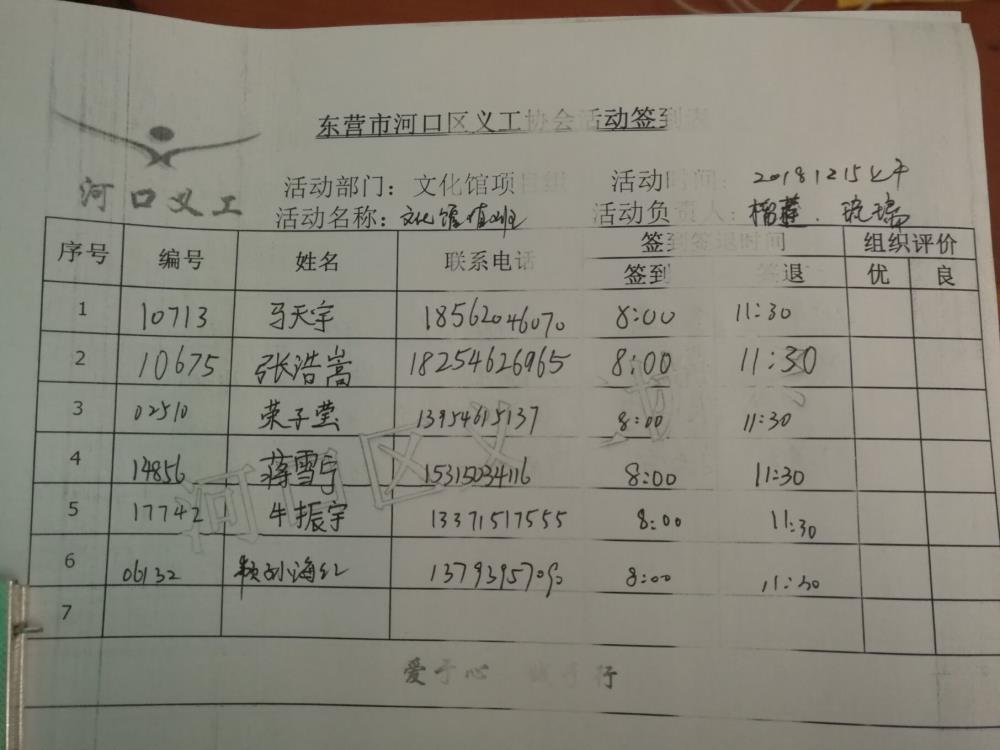 东营市河口区义工协会活动签到表
河口义工
活动部门：文化馆项目组 活动时间：20181215上午
活动名称：文化馆值班 活动负责人：榴莲、琉璃
序号 编号 姓名 联系电话 签到签退时间 组织评价
签到 签退 优 良
1 10713 马天宇 18562046070 8:00 11:30
2 10675 张浩嵩 18254626965 8:00 11:30
3 02510 荣子莹 13954615137 8:00 11:30
4 14856 蒋雪宁 15315034116 8:00 11:30
5 17742 牛振宇 13371517555 8:00 11:30
6 06132 刘海红 13793957090 8:00 11:30
7
河口区义工协会
爱于心 诚于行